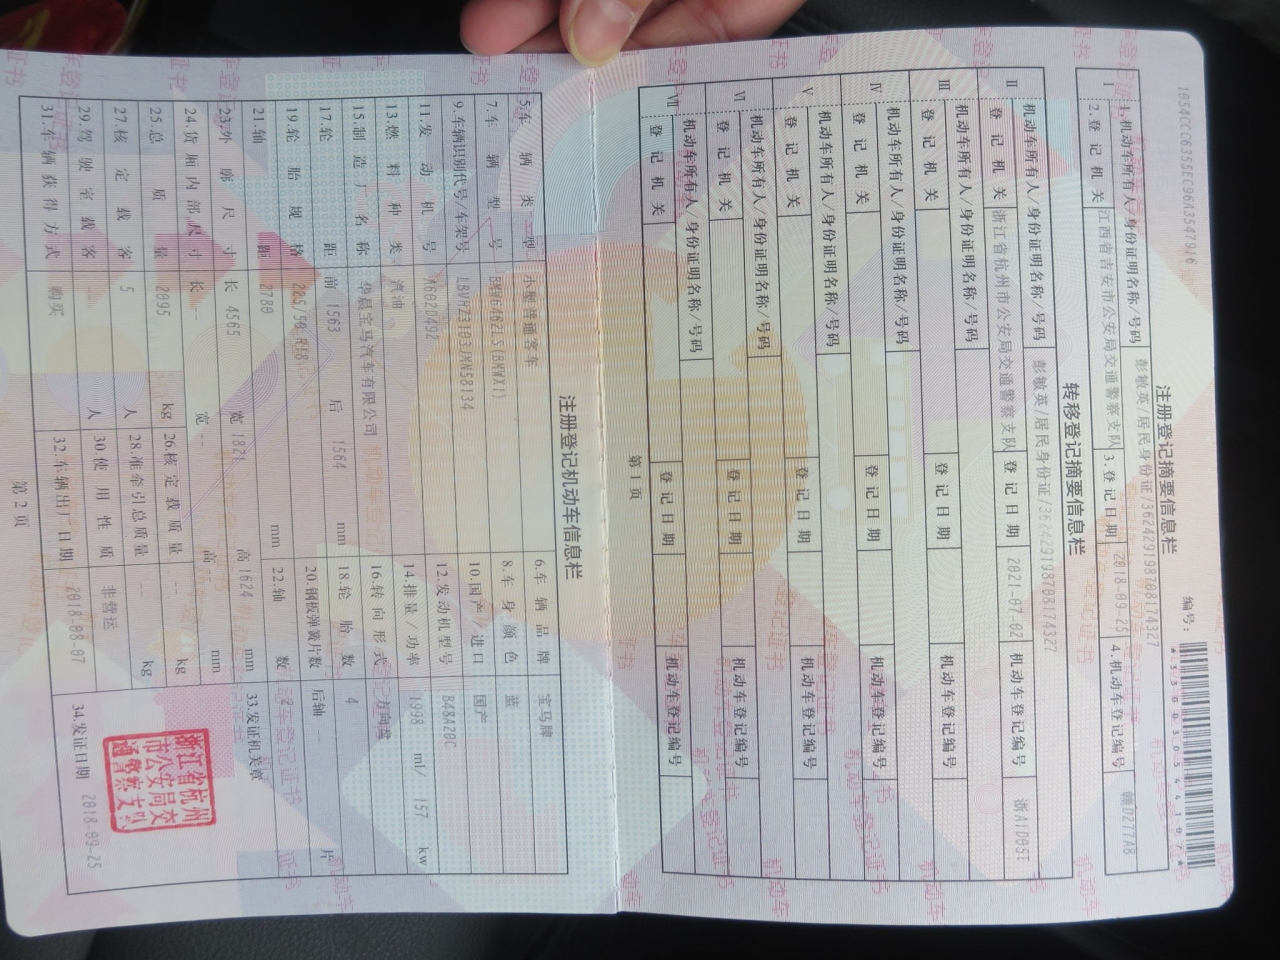 编号:
注册登记摘要信息栏
I 1.机动车所有人/身份证明名称/号码 彭敏英/居民身份证/362429198708174327
2.登记机关 江西省吉安市公安局交通警察支队 3.登记日期 2018-09-25 4.机动车登记编号 赣D277A8
转移登记摘要信息栏
II 机动车所有人/身份证明名称/号码 彭敏英/居民身份证/362429198708174327
登记机关 浙江省杭州市公安局交通警察支队 登记日期 2021-07-02 机动车登记编号 浙A1D85T
III 机动车所有人/身份证明名称/号码
登记机关 登记日期 机动车登记编号
IV 机动车所有人/身份证明名称/号码
登记机关 登记日期 机动车登记编号
V 机动车所有人/身份证明名称/号码
登记机关 登记日期 机动车登记编号
VI 机动车所有人/身份证明名称/号码
登记机关 登记日期 机动车登记编号
VII 机动车所有人/身份证明名称/号码
登记机关 登记日期 机动车登记编号
第1页
注册登记机动车信息栏
5.车辆类型 小型普通客车 6.车辆品牌 宝马牌
7.车辆型号 BMW6462LS(BMWX1) 8.车身颜色 蓝
9.车辆识别代号/车架号 LBVHZ3103JMN58134 10.国产/进口 国产
11.发动机号 A602D492 12.发动机型号 B48A20C
13.燃料种类 汽油 14.排量/功率 1998 ml/ 157 kw
15.制造厂名称 华晨宝马汽车有限公司 16.转向形式 方向盘
17.轮距 前 1563 后 1564 mm 18.轮胎数 4
19.轮胎规格 225/50 R18 20.钢板弹簧片数 后轴 片
21.轴距 2780 mm 22.轴数 2
23.外廓尺寸 长 4565 宽 1821 高 1624 mm 33.发证机关章
24.货厢内部尺寸 长 -- 宽 -- 高 mm
25.总质量 2095 kg 26.核定载质量 -- kg
27.核定载客 5 人 28.准牵引总质量 -- kg
29.驾驶室载客 人 30.使用性质 非营运
31.车辆获得方式 购买 32.车辆出厂日期 2018-08-07 34.发证日期 2018-09-25
浙江省杭州
市公安局交
通警察支队
第2页